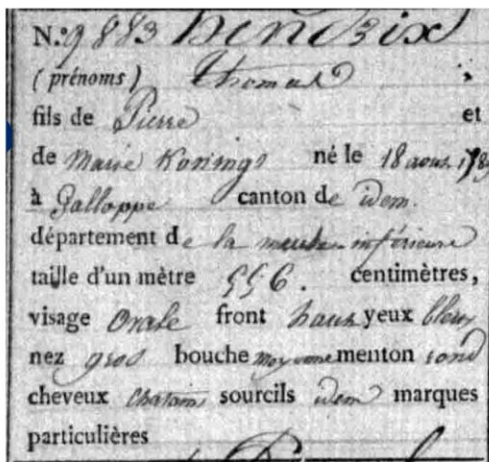 N.º 9883 Hendrix
(prénoms) Thomas
fils de Pierre et
de Marie Konings né le 18 aous. 178
à Galloppe canton de idem.
département de la meuse inférieure
taille d'un mètre 556. centimètres,
visage Ovale front haut yeux bleux
nez gros bouche moyenne menton rond
cheveux chatains sourcils idem marques
particulières